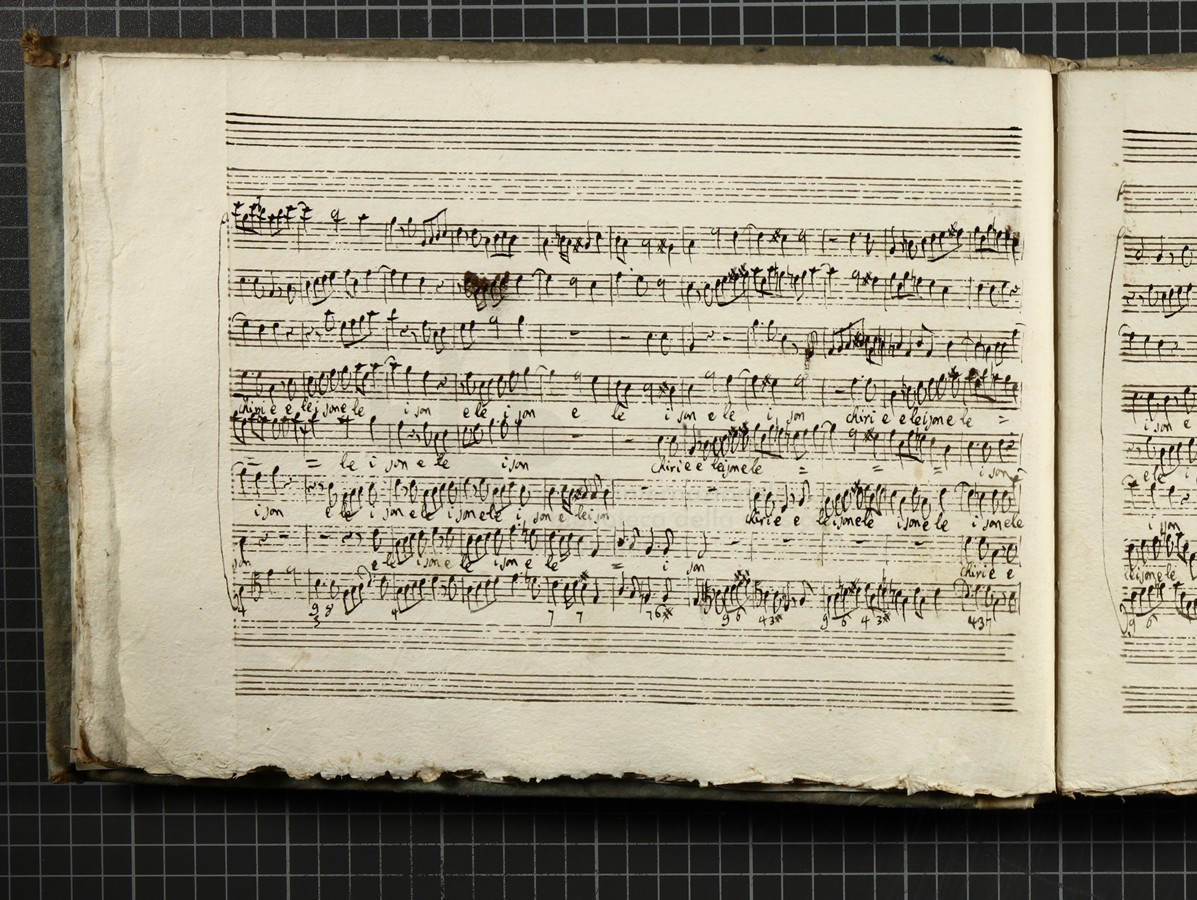 chiri e e leisone le i son e le i son e le i son e le i son chiri e e leisone le =
= = le i son e le i son chiri e e leisone le = = = i son
i son e le i son e le i sonele i son e leison chiri e e leisonele isone le i sonele
son e le ison e le ison e le = i son chiri e e
9 8 4 7 7 7 6 9 6 4 3 9 6 4 3 4 3
3
i son e
ele i
i son
leisonele
9 6